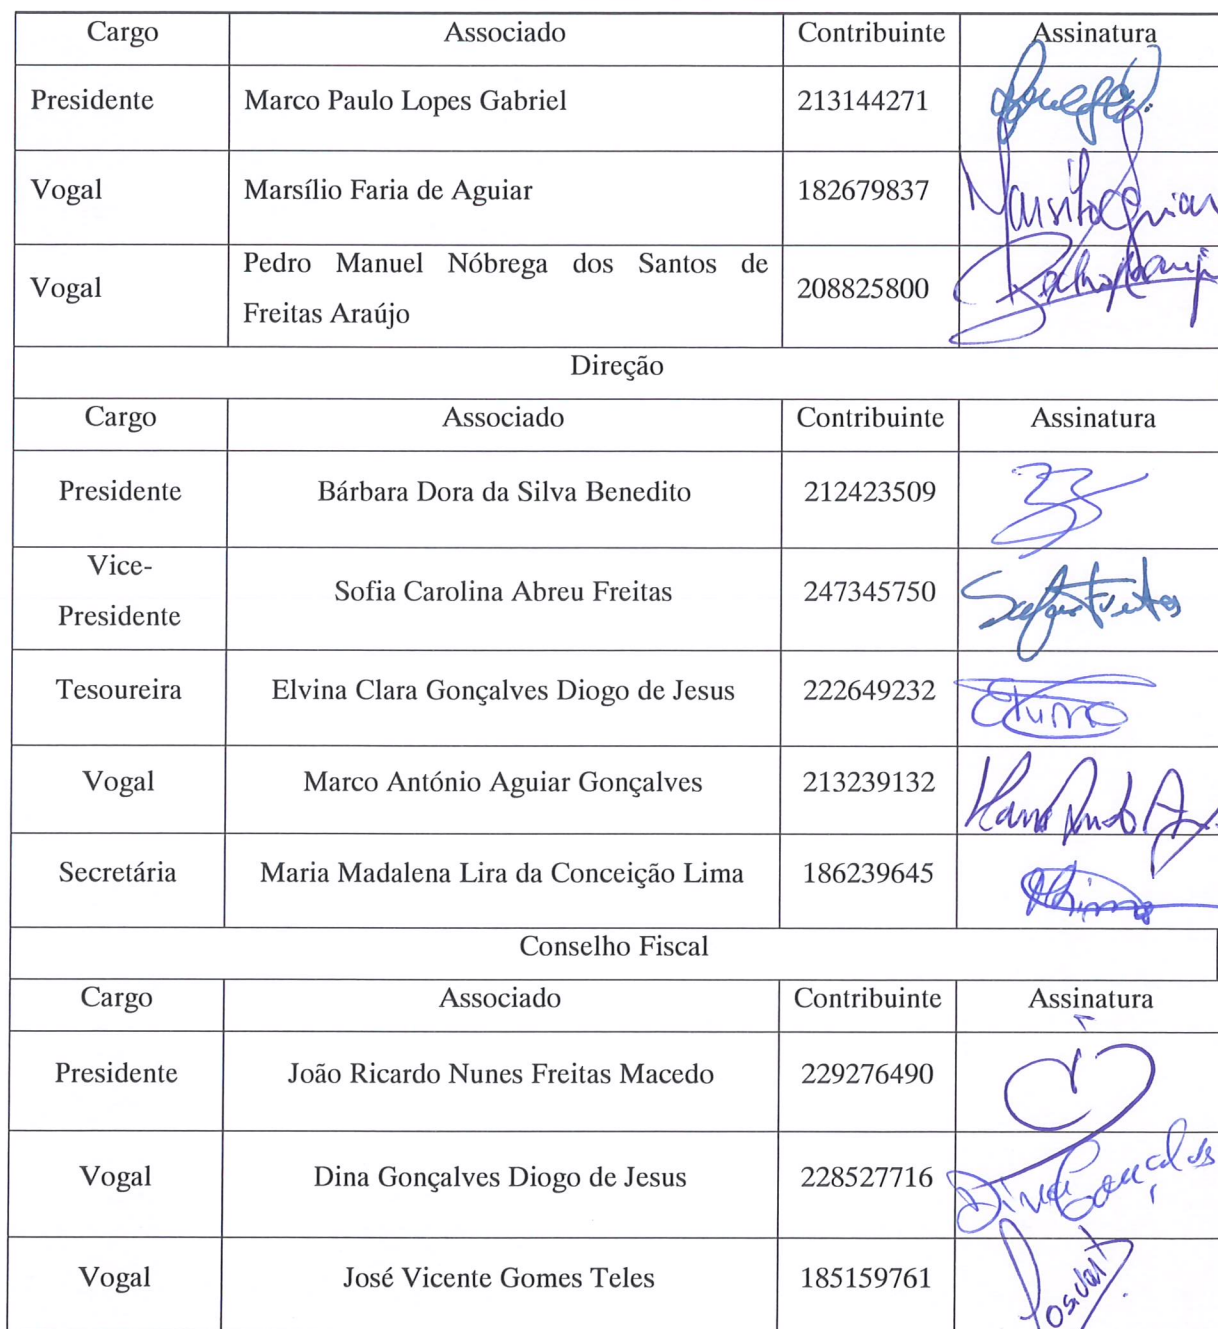 Cargo Associado Contribuinte Assinatura
Presidente Marco Paulo Lopes Gabriel 213144271
Vogal Marsílio Faria de Aguiar 182679837 Marsílio Aguiar
Vogal Pedro Manuel Nóbrega dos Santos de
Freitas Araújo 208825800 Pedro Araújo
Direção
Cargo Associado Contribuinte Assinatura
Presidente Bárbara Dora da Silva Benedito 212423509
Vice-
Presidente Sofia Carolina Abreu Freitas 247345750 Sofia Freitas
Tesoureira Elvina Clara Gonçalves Diogo de Jesus 222649232
Vogal Marco António Aguiar Gonçalves 213239132
Secretária Maria Madalena Lira da Conceição Lima 186239645
Conselho Fiscal
Cargo Associado Contribuinte Assinatura
Presidente João Ricardo Nunes Freitas Macedo 229276490
Vogal Dina Gonçalves Diogo de Jesus 228527716 Dina Gonçalves
Vogal José Vicente Gomes Teles 185159761